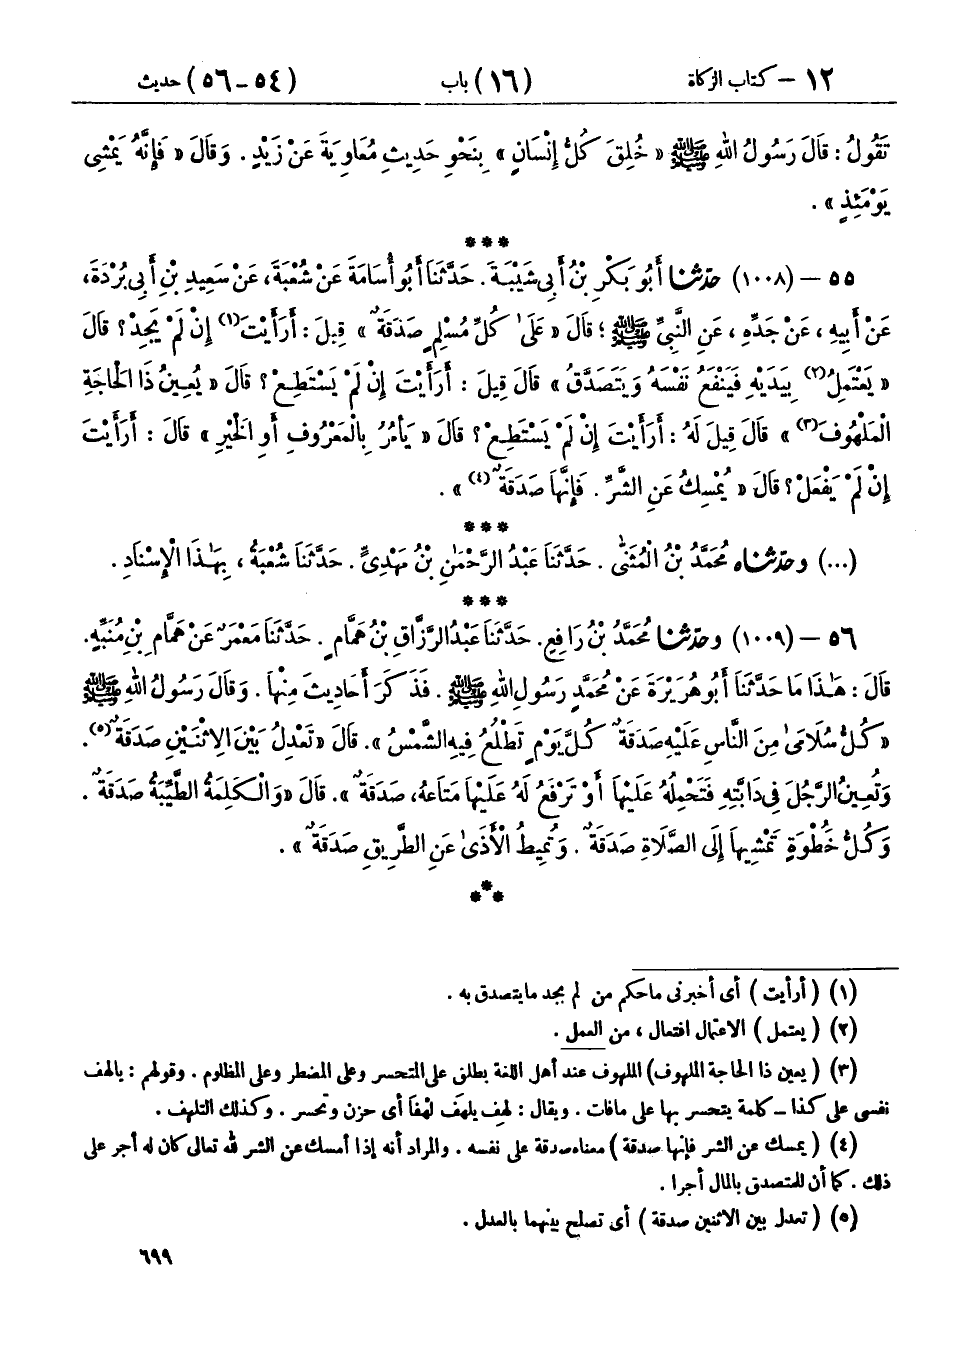 ١٢ – كتاب الزكاة (١٦) باب (٥٤ - ٥٦) حديث
تَقُولُ : قَالَ رَسُولُ اللهِ ﷺ « خُلِقَ كُلُّ إِنْسَانٍ » بِنَحْوِ حَدِيثِ مُعَاوِيَةَ عَنْ زَيْدٍ . وَقَالَ « فَإِنَّهُ يَمْشِى
يَوْمَئِذٍ » .
***
٥٥ – (١٠٠٨) حدّثنا أَبُو بَكْرِ بْنُ أَبِى شَيْبَةَ . حَدَّثَنَا أَبُو أُسَامَةَ عَنْ شُعْبَةَ ، عَنْ سَعِيدِ بْنِ أَبِى بُرْدَةَ ،
عَنْ أَبِيهِ ، عَنْ جَدِّهِ ، عَنِ النَّبِىِّ ﷺ ؛ قَالَ « عَلَىٰ كُلِّ مُسْلِمٍ صَدَقَةٌ » قِيلَ : أَرَأَيْتَ(١) إِنْ لَمْ يَجِدْ ؟ قَالَ
« يَعْتَمِلُ(٢) بِيَدَيْهِ فَيَنْفَعُ نَفْسَهُ وَيَتَصَدَّقُ » قَالَ قِيلَ : أَرَأَيْتَ إِنْ لَمْ يَسْتَطِعْ ؟ قَالَ « يُعِينُ ذَا الْحَاجَةِ
الْمَلْهُوفَ(٣) » قَالَ قِيلَ لَهُ : أَرَأَيْتَ إِنْ لَمْ يَسْتَطِعْ ؟ قَالَ « يَأْمُرُ بِالْمَعْرُوفِ أَوِ الْخَيْرِ » قَالَ : أَرَأَيْتَ
إِنْ لَمْ يَفْعَلْ ؟ قَالَ « يُمْسِكُ عَنِ الشَّرِّ . فَإِنَّهَا صَدَقَةٌ(٤) » .
***
(...) وحدّثناه مُحَمَّدُ بْنُ الْمُثَنَّىٰ . حَدَّثَنَا عَبْدُ الرَّحْمَٰنِ بْنُ مَهْدِىٍّ . حَدَّثَنَا شُعْبَةُ ، بِهَٰذَا الْإِسْنَادِ .
***
٥٦ – (١٠٠٩) وحدّثنا مُحَمَّدُ بْنُ رَافِعٍ . حَدَّثَنَا عَبْدُ الرَّزَّاقِ بْنُ هَمَّامٍ . حَدَّثَنَا مَعْمَرٌ عَنْ هَمَّامِ بْنِ مُنَبِّهٍ .
قَالَ : هَٰذَا مَا حَدَّثَنَا أَبُو هُرَيْرَةَ عَنْ مُحَمَّدٍ رَسُولِ اللهِ ﷺ . فَذَكَرَ أَحَادِيثَ مِنْهَا . وَقَالَ رَسُولُ اللهِ ﷺ
« كُلُّ سُلَامَىٰ مِنَ النَّاسِ عَلَيْهِ صَدَقَةٌ كُلَّ يَوْمٍ تَطْلُعُ فِيهِ الشَّمْسُ » . قَالَ « تَعْدِلُ بَيْنَ الِاثْنَيْنِ صَدَقَةٌ(٥) .
وَتُعِينُ الرَّجُلَ فِى دَابَّتِهِ فَتَحْمِلُهُ عَلَيْهَا أَوْ تَرْفَعُ لَهُ عَلَيْهَا مَتَاعَهُ ، صَدَقَةٌ » . قَالَ « وَالْكَلِمَةُ الطَّيِّبَةُ صَدَقَةٌ .
وَكُلُّ خُطْوَةٍ تَمْشِيهَا إِلَى الصَّلَاةِ صَدَقَةٌ . وَتُمِيطُ الْأَذَىٰ عَنِ الطَّرِيقِ صَدَقَةٌ » .
***
(١) ( أرأيت ) أى أخبرنى ماحكم من لم يجد ما يتصدق به .
(٢) ( يعتمل ) الاعتمال افتعال ، من العمل .
(٣) ( يعين ذا الحاجة الملهوف) الملهوف عند أهل اللغة يطلق على المتحسر وعلى المضطر وعلى المظلوم . وقولهم : يالهف
نفسى على كذا – كلمة يتحسر بها على مافات . ويقال : لهِف يلهَف لَهْفًا أى حزن وتحسر . وكذلك التلهف .
(٤) ( يمسك عن الشر فإنها صدقة ) معناه صدقة على نفسه . والمراد أنه إذا أمسك عن الشر لله تعالى كان له أجر على
ذلك . كما أن للمتصدق بالمال أجرا .
(٥) ( تعدل بين الاثنين صدقة ) أى تصلح بينهما بالعدل .
٦٩٩